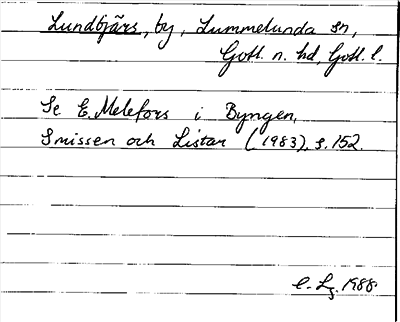 Lundbjärs, by, Lummelunda sn,
Gotl. n. hd, Gotl. l.
Se E. Melefors i Byngen,
Smissen och Listar (1983), s. 152.
E. Lg. 1988